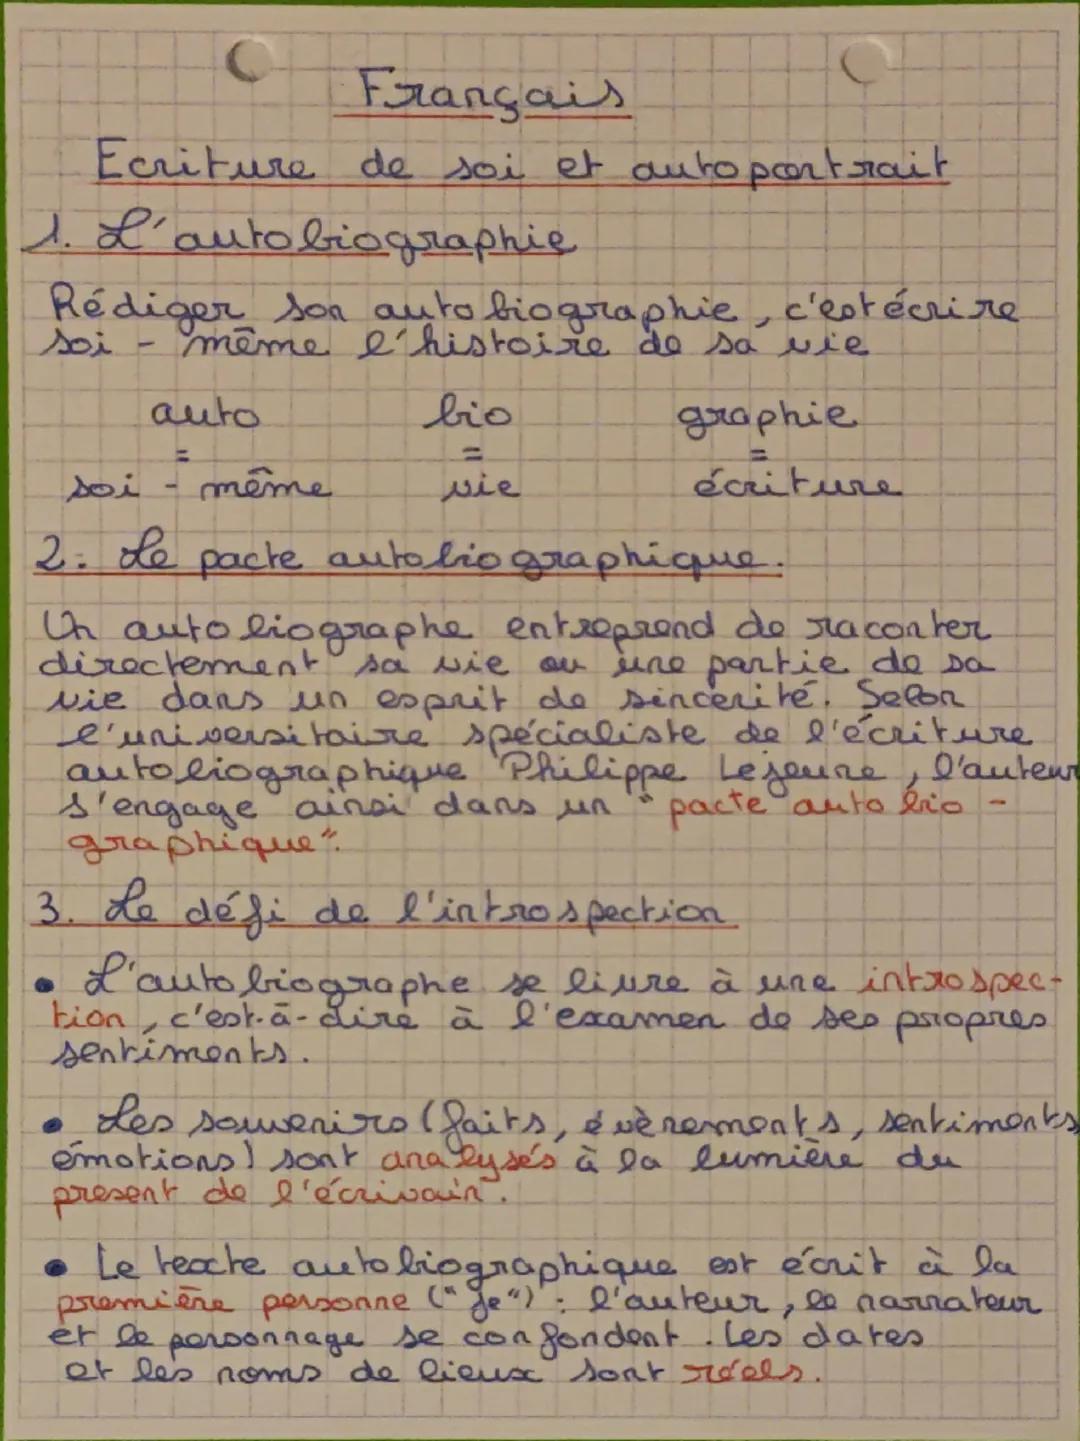 Français
Ecriture de soi et autoportrait
1. L'autobiographie
Rédiger son autobiographie, c'est écrire
soi-même l'histoire de sa vie
auto bio graphie
= = =
soi-même vie écriture
2. Le pacte autobiographique.
Un autobiographe entreprend de raconter
directement sa vie ou une partie de sa
vie dans un esprit de sincérité. Selon
l'universitaire spécialiste de l'écriture
autobiographique Philippe Lejeune, l'auteur
s'engage ainsi dans un "pacte autobio-
graphique".
3. Le défi de l'introspection
• L'autobiographe se livre à une introspec-
tion, c'est-à-dire à l'examen de ses propres
sentiments.
• Les souvenirs (faits, évènements, sentiments
émotions) sont analysés à la lumière du
présent de l'écrivain.
• Le texte autobiographique est écrit à la
première personne ("je") : l'auteur, le narrateur
et le personnage se confondent. Les dates
et les noms de lieux sont réels.